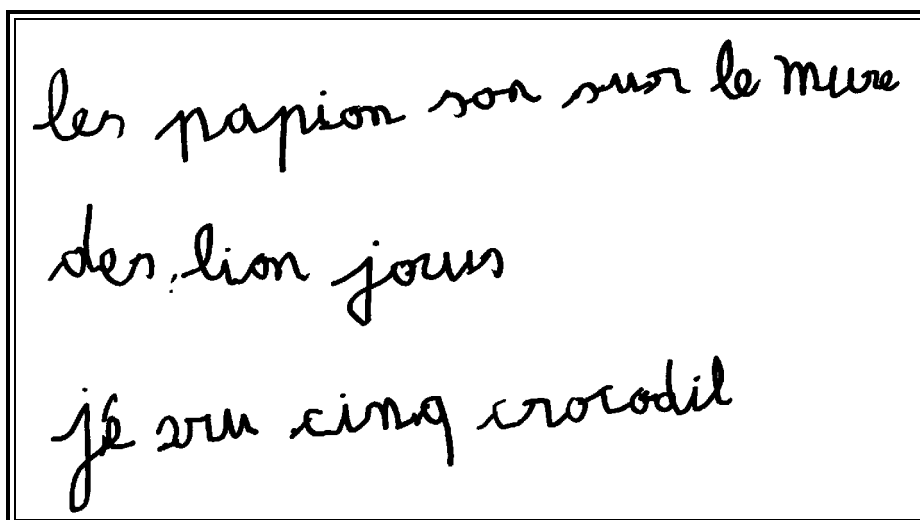 les papion son sur le mure
des lion jous
jé vu cinq crocodil